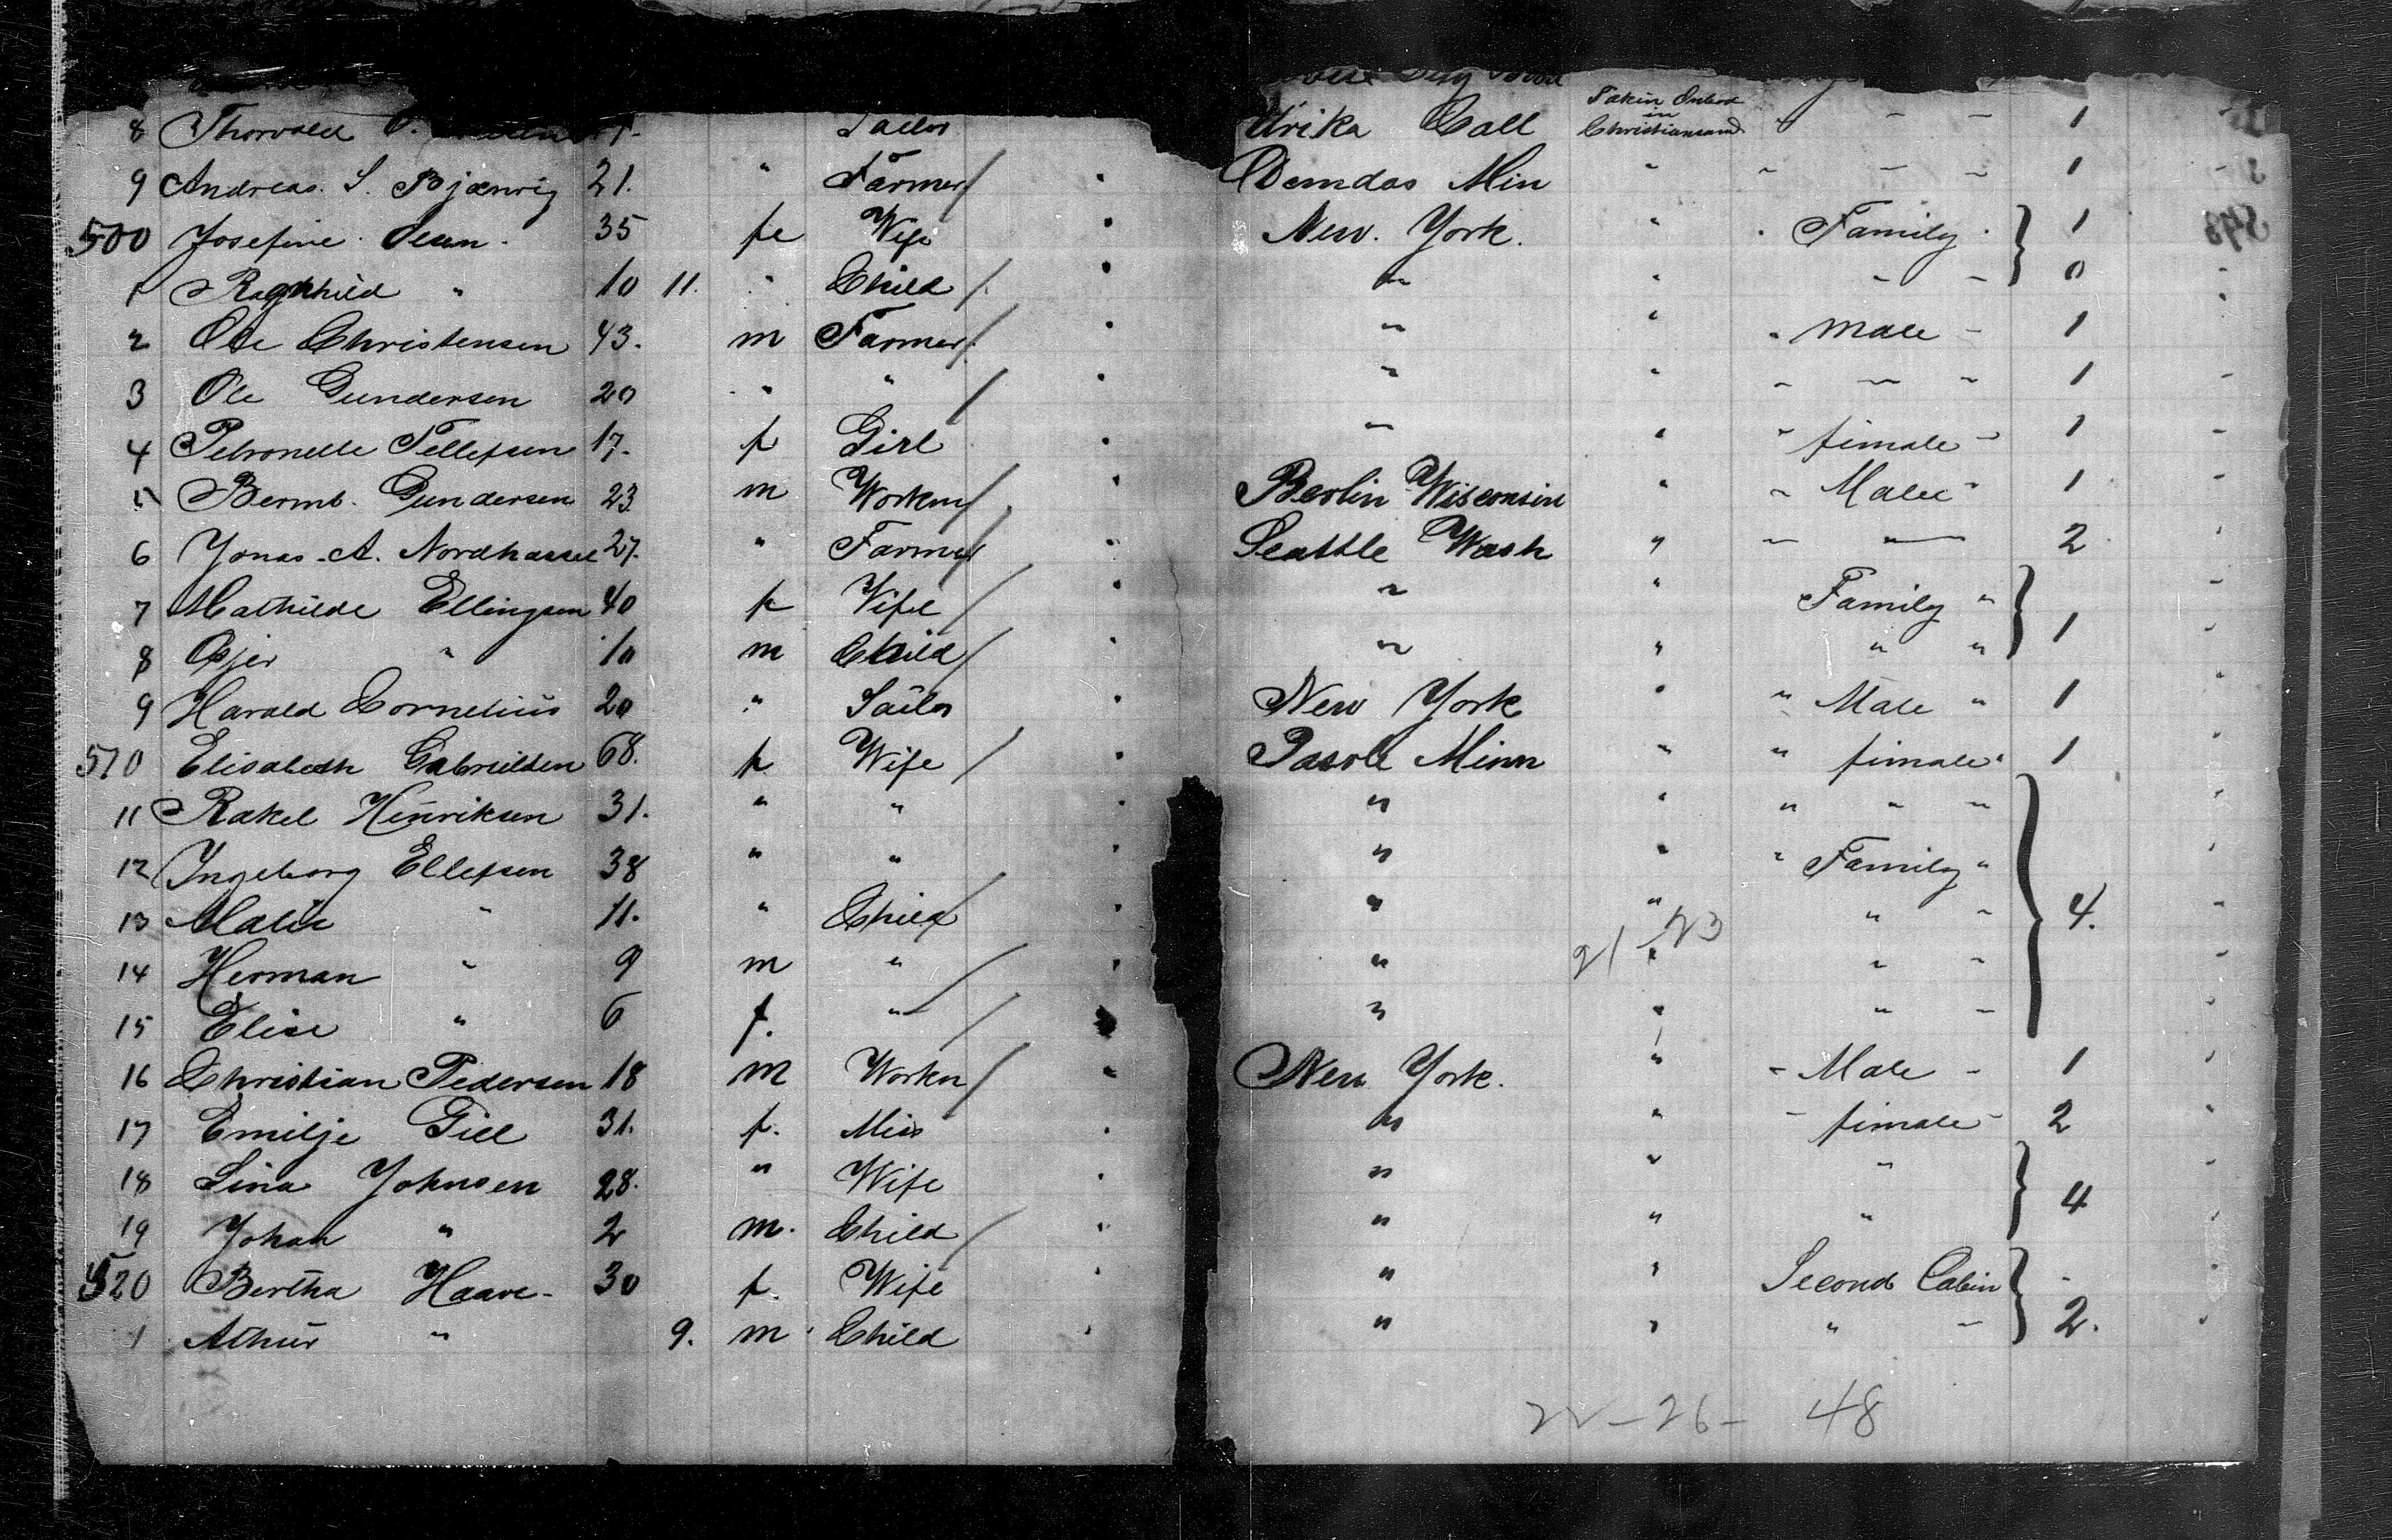 8 Thorvald Sailor Urika Call Taken Onbord in Christiansand " - - 1
9 Andreas. S. Bjænvig 21. " Farmer Dundas Min " " - - 1
500 Josefine Olsen. 35 fe Wife New. York. " Family. 1
1 Ragnhild " 10 11. " Child " " " - 0
2 Ole Christensen 43. m Farmer " " " Male - 1
3 Ole Gundersen 20 " " " " - - - 1
4 Petronelle Tellefsen 17. f Girl " " " fimale - 1
5 Bernt. Gundersen 23 m Workm Berlin Wisconsin " " Male " 1
6 Jonas. A. Nordhassel 27. " Farmer Seattle Wash " - - 2
7 Mathilde Ellingsen 40 f Wife " " Family "
8 " 10 m Child " " " " 1
9 Harald Cornelius 20 " Sailor New York " " Male " 1
510 Elisabeth Gabrielsen 68. f Wife Minn " " fimale " 1
11 Rakel Henriksen 31. " " " " " " -
12 Ingeborg Ellefsen 38 " " " " " Family "
13 Malie " 11. " Child " " " - 4.
14 Herman " 9 m " " 21 - 23 " " -
15 Elise " 6 f. " " " " -
16 Christian Pedersen 18 m Workm New York. " - Male - 1
17 Emilje Gill 31. f. Miss " " - fimale - 2
18 Lina Johnsen 28. " Wife " " "
19 Johan " 2 m. Child " " " 4
520 Bertha Haave - 30 f. Wife " " Second Cabin -
1 Athur " 9. m Child " " " - 2.
22 - 26 - 48